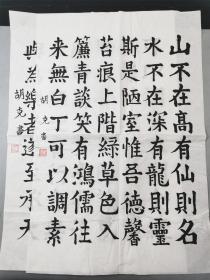 山不在高有仙則名
水不在深有龍則靈
斯是陋室惟吾德馨
苔痕上階綠草色入
簾青談笑有鴻儒往
來無白丁可以調素
胡克書
胡克書